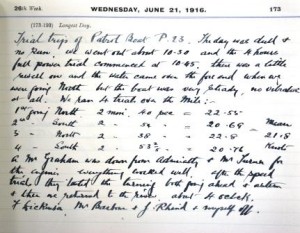 26th Week. WEDNESDAY, JUNE 21, 1916. 173
(173-193) Longest Day.
Trial trips of Patrol Boat P. 23. The day was dull &
no Rain, we went out about 10-30 and the 4 hours
full power trial commenced at 10-45. there was a little
swell on and the water came over the fore end when we
were going North but the boat was very steady, no vibration
at all. We ran 4 trials on the Mile:-
1st going North 2 min 40 sec = 22.55
2nd " South 2 " 54 " = 20.69 Mean
3 " North 2 " 38 " = 22.8 21.8
4 " South 2 " 53 " = 20.76 Knots
A Mr Graham was down from Admiralty & Mr Turner for
the engines. everything worked well, after the speed
trial, they tested the turning both going ahead & astern
& then we returned to the river about 4 oclock.
F Wickinson, Mr & J. Rhind & myself